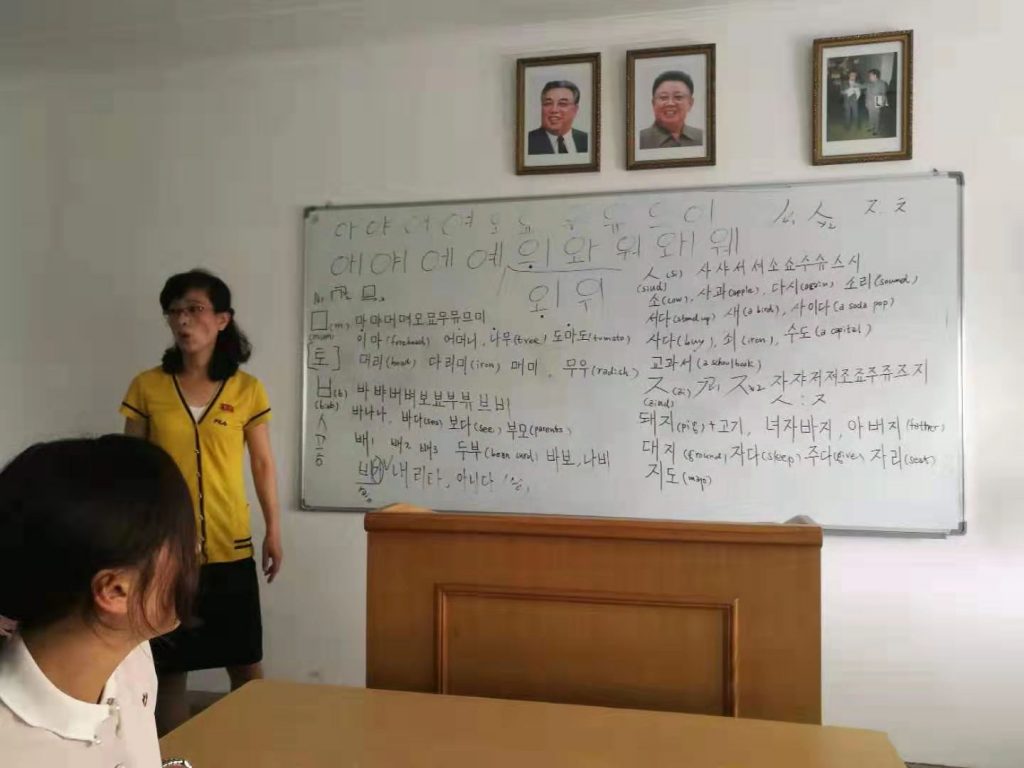 아 야 어 여 오 요 우 유 으 이
애 얘 에 예 외 와 워 왜 웨
외 위
ㅁ (m) 마 먀 머 며 모 묘 무 뮤 므 미
(mium)
이마 (forehead) 어머니, 나무 (tree) 도마도 (tomato)
머리 (head) 다리미 (iron) 매미, 무우 (radish)
ㅂ (b) 바 뱌 버 벼 보 뵤 부 뷰 브 비
(biub)
바나나, 바다 (sea) 보다 (see) 부모 (parents)
배1 배2 배3 두부 (bean curd) 바보, 나비
내리다, 아니다
ㅈ. ㅊ
ㅅ (s) 사 샤 서 셔 소 쇼 수 슈 스 시
(siud)
소 (cow), 사과 (apple), 다시 (again), 소리 (sound)
서다 (stand up) 새 (a bird), 사이다 (a soda pop)
사다 (buy), 쇠 (iron), 수도 (a capital)
교과서 (a school book)
ㅈ 자 쟈 저 져 조 죠 주 쥬 즈 지
(ziud) ㅅ : ㅈ
돼지 (pig) + 고기, 녀자바지, 아버지 (father)
대지 (ground) 자다 (sleep) 주다 (give) 자리 (seat)
지도 (map)
FILA